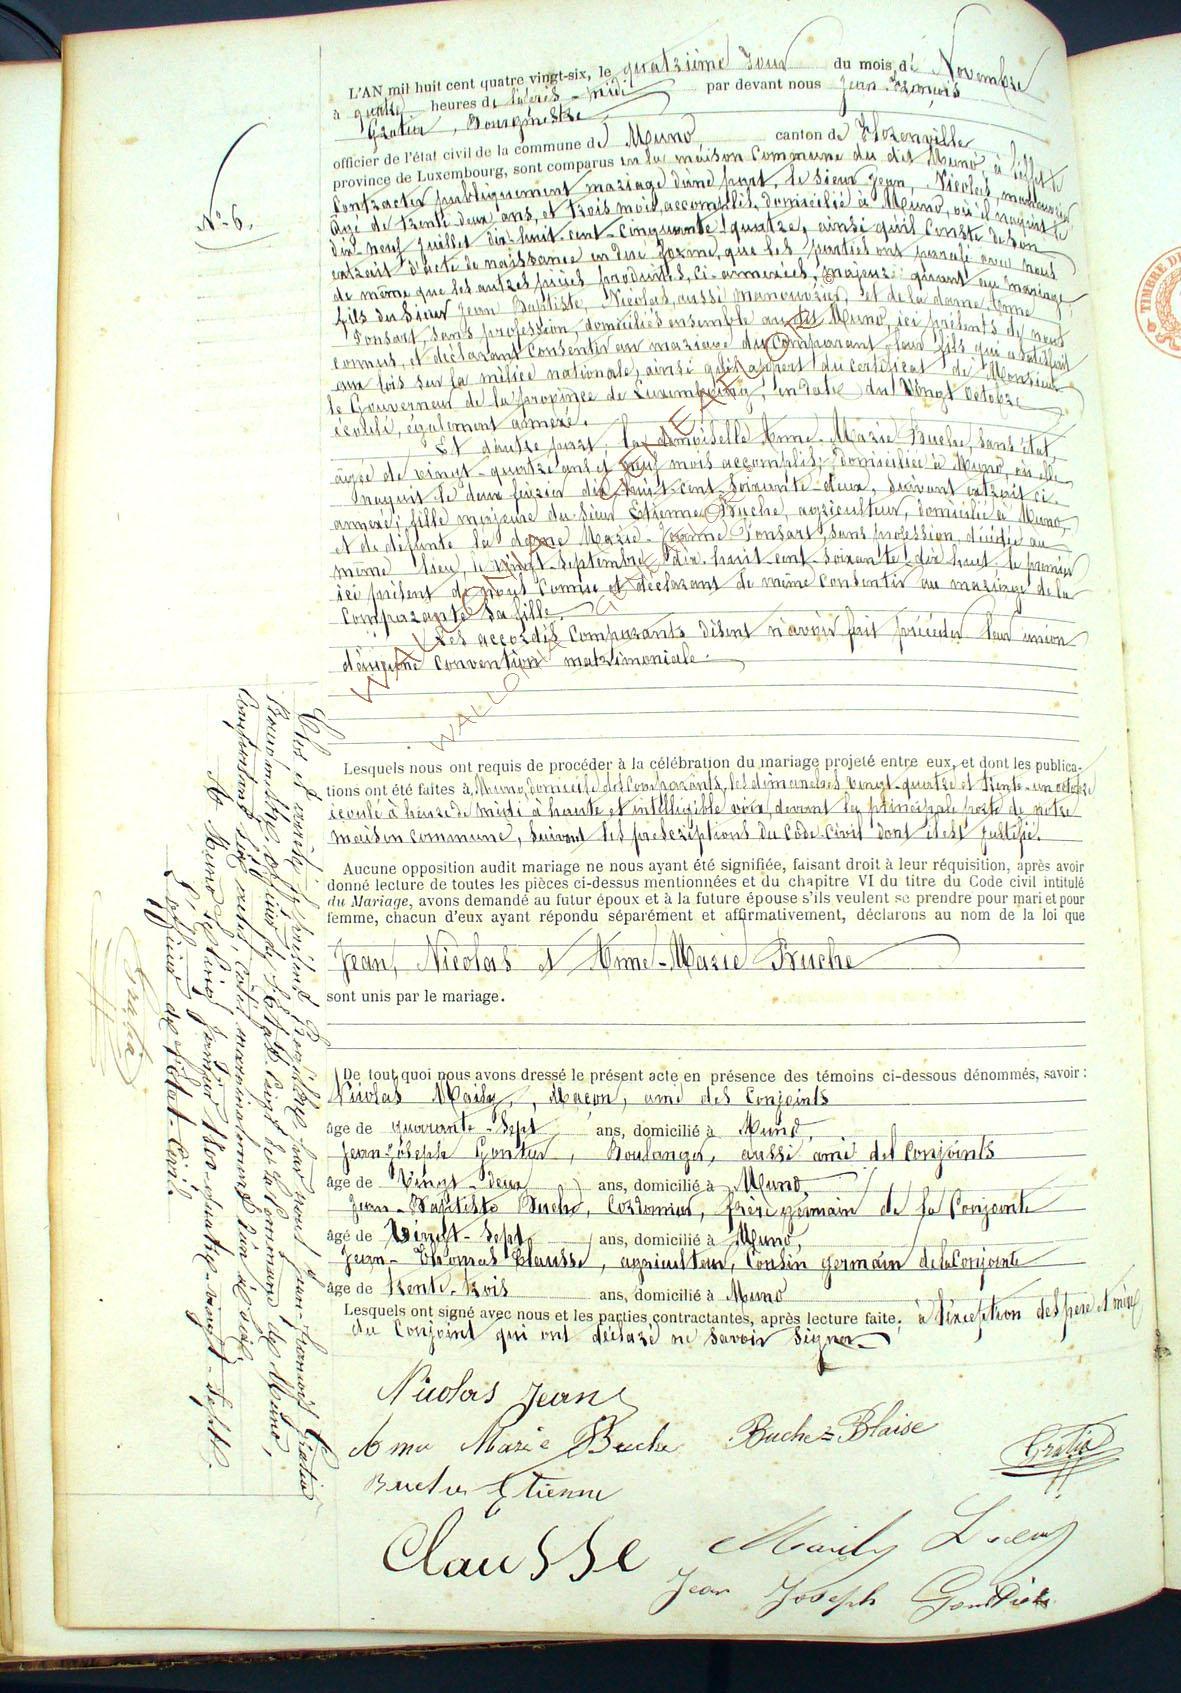 L'AN mil huit cent quatre vingt-six, le quatrième jour du mois de Novembre
à quatre heures de l'après-midi par devant nous Jean-François
Gratia, Bourgmestre
officier de l'état civil de la commune de Muno canton de Florenville
province de Luxembourg, sont comparus en la maison commune du dit Muno, à l'effet de
contracter publiquement mariage d'une part, le sieur Jean, Nicolas, manouvrier
âgé de trente-deux ans, et trois mois accomplis, domicilié à Muno, où il naquit le
dix-neuf juillet dix-huit-cent-cinquante-quatre, ainsi qu'il conste de son
extrait d'acte de naissance en due forme, que les parties ont parafé avec nous
de même que les autres pièces produites, ci-annexées, majeur quant au mariage
fils du Sieur Jean Baptiste, Nicolas, aussi manouvrier, et de la dame Anne
Ponsart, sans profession, domiciliés ensemble au dit Muno, ici présents de nous
connus, et déclarant consentir au mariage du comparant, leur fils qui a satisfait
aux lois sur la milice nationale, ainsi qu'il appert du certificat de Monsieur
le Gouverneur de la province de Luxembourg, en date du Vingt octobre
écoulé, également annexé.
Et d'autre part, la demoiselle Anne-Marie Buche, sans état,
âgée de vingt-quatre ans et neuf mois accomplis, domiciliée à Muno, où elle
naquit le deux février dix-huit-cent-soixante-deux, suivant extrait ci-
annexé; fille majeure du sieur Etienne Buche, agriculteur, domicilié à Muno,
et de défunte la dame Marie-Jeanne Ponsart, sans profession, décédée au
même lieu, le vingt-septembre dix-huit-cent-soixante-dix huit, le premier
ici présent de nous connu et déclarant de même consentir au mariage de la
comparante sa fille.
Les accordés comparants disent n'avoir fait précéder leur union
d'aucune convention matrimoniale.
Lesquels nous ont requis de procéder à la célébration du mariage projeté entre eux, et dont les publica-
tions ont été faites à Muno, domicile des comparants, les dimanches vingt-quatre et trente-un octobre
écoulé à heure de midi à haute et intelligible voix, devant la principale porte de notre
maison commune, suivant les prescriptions du Code-civil dont il est justifié.
Aucune opposition audit mariage ne nous ayant été signifiée, faisant droit à leur réquisition, après avoir
donné lecture de toutes les pièces ci-dessus mentionnées et du chapitre VI du titre du Code civil intitulé
du Mariage, avons demandé au futur époux et à la future épouse s'ils veulent se prendre pour mari et pour
femme, chacun d'eux ayant répondu séparément et affirmativement, déclarons au nom de la loi que
Jean, Nicolas et Anne-Marie Buche
sont unis par le mariage.
De tout quoi nous avons dressé le présent acte en présence des témoins ci-dessous dénommés, savoir :
Nicolas Maily, Maçon, ami des Conjoints
âgé de quarante-sept ans, domicilié à Muno,
Jean-Joseph Boulanger, aussi ami des Conjoints
âgé de Vingt-deux ans, domicilié à Muno,
Jean-Baptiste Buche, Cordonnier, frère germain de la Conjointe
âgé de Vingt-sept ans, domicilié à Muno,
Jean-Thomas Clausse, agriculteur, Cousin germain de la Conjointe
âgé de trente-trois ans, domicilié à Muno
Lesquels ont signé avec nous et les parties contractantes, après lecture faite, à l'exception des père et mère
du Conjoint qui ont déclaré ne savoir signer
Nicolas Jean
Anna Marie Buche Buche-Blaise Gratia
Buche Etienne
Clausse Maily
Jean Joseph
N° 6.
Clos et arrêté le présent Registre par nous Jean-François Gratia
Bourgmestre officier de l'Etat Civil de la Commune de Muno,
contenant six actes, cotés marginalement d'un à six.
A Muno, le cinq Janvier 1800-quatre-vingt-sept.
L'officier de l'Etat-Civil.
Gratia
WALLONIA GENEAFLOR ©
WALLONIA GENEAFLOR
TIMBRE DE